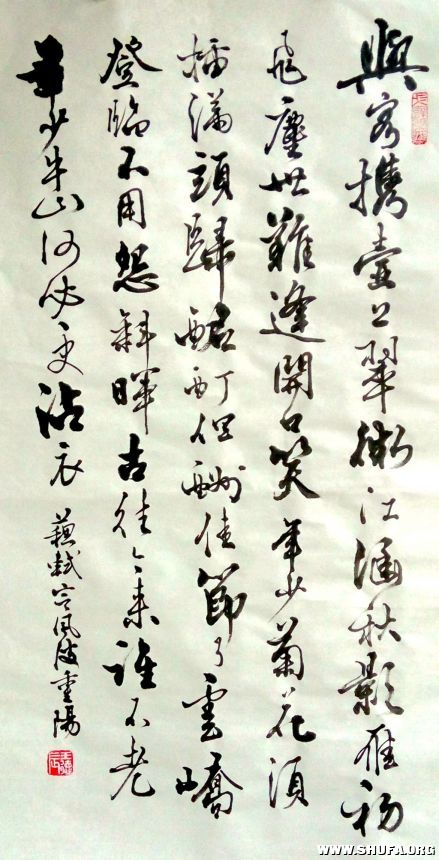 與客携壺上翠微江涵秋影雁初
飛塵世難逢開口笑年少菊花須
插滿頭歸酩酊但酬佳節了雲嶠
登臨不用怨斜暉古往今來誰不老
年少牛山何必更沾衣 蘇軾定風波重陽
WWW.SHUFA.ORG